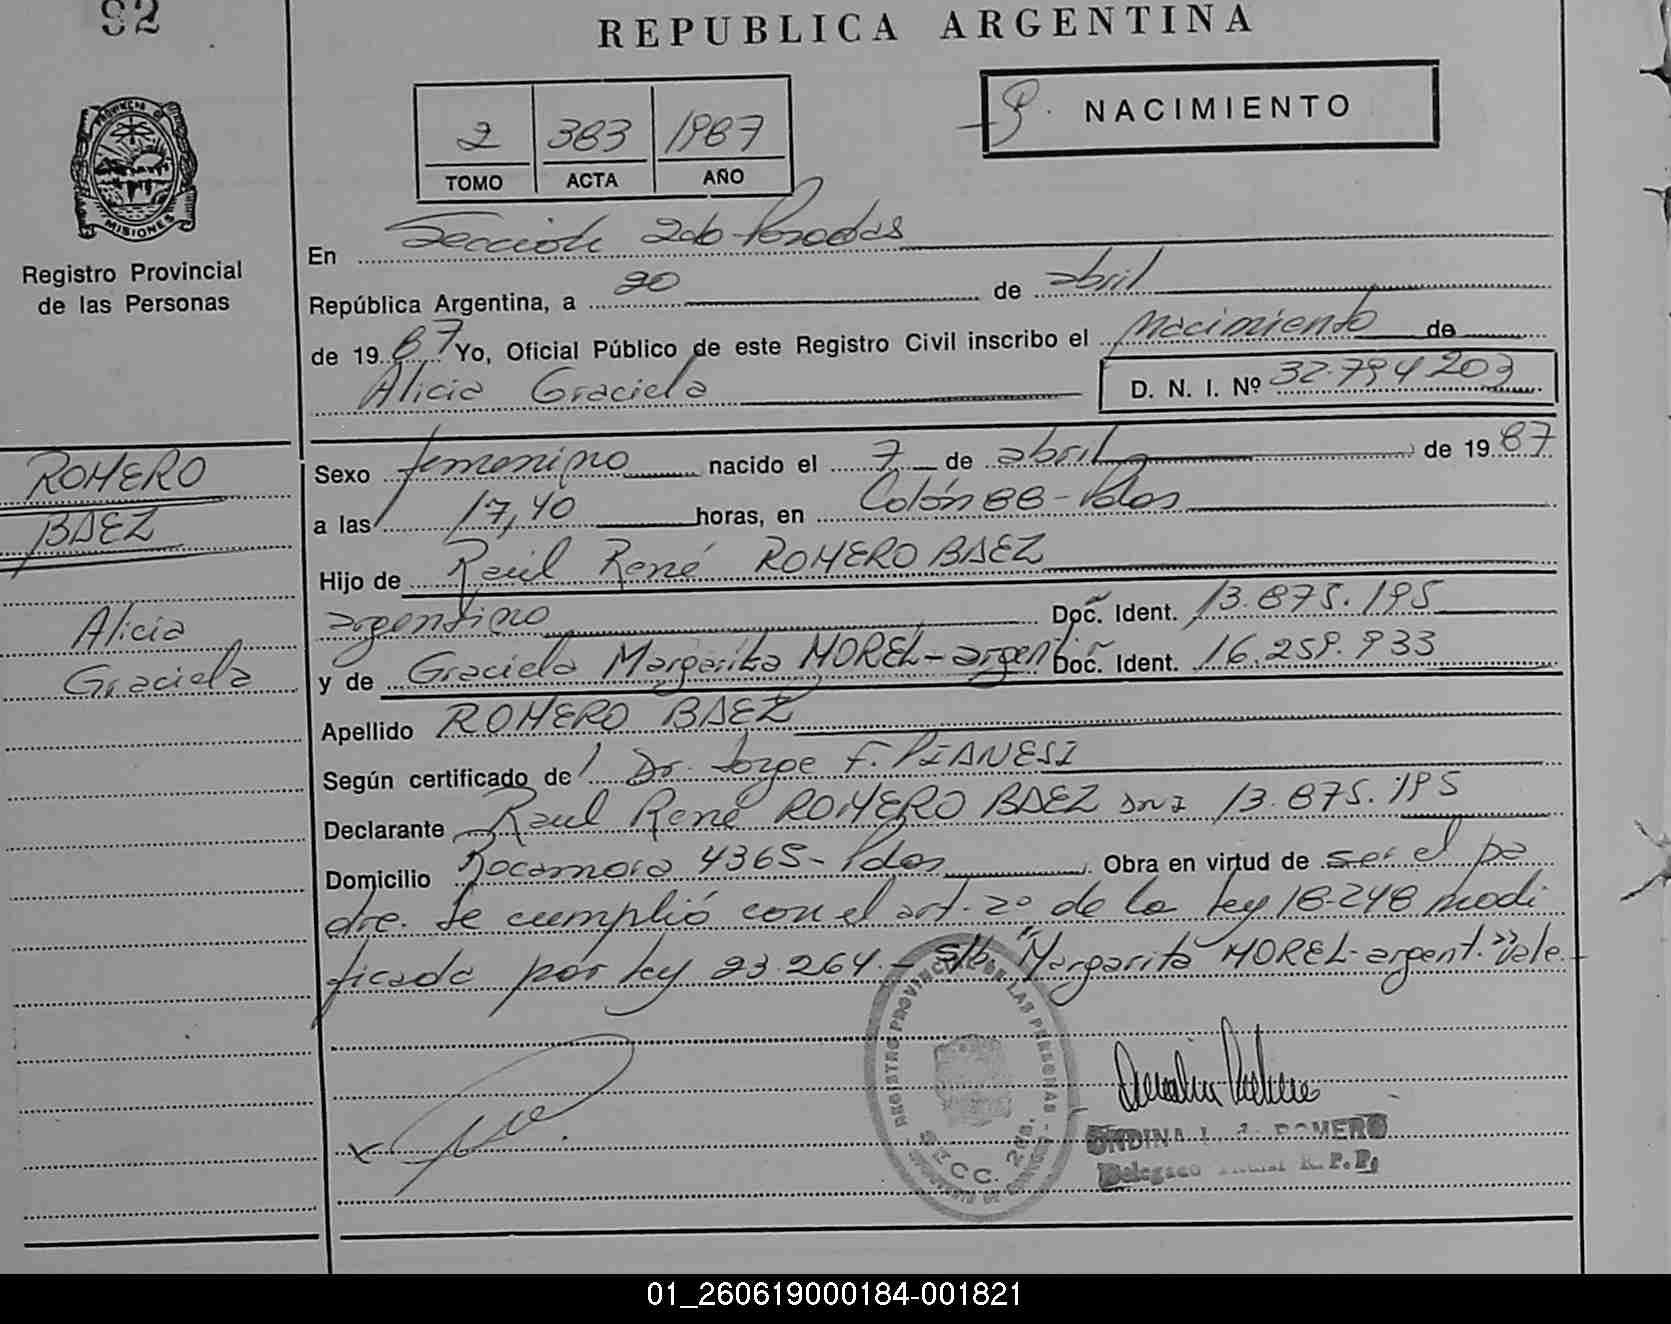 92
REPUBLICA ARGENTINA
NACIMIENTO
2 383 1987
TOMO ACTA AÑO
PROVINCIA DE MISIONES
Registro Provincial
de las Personas
En Sección 2da Posadas
República Argentina, a 20 de abril
de 1987 Yo, Oficial Público de este Registro Civil inscribo el Nacimiento de
Alicia Graciela D. N. I. Nº 32.794203
ROMERO
BAEZ
Alicia
Graciela
Sexo femenino nacido el 7 de abril de 1987
a las 17,40 horas, en Colón 88-Pdas
Hijo de Raúl René ROMERO BAEZ
argentino Doc. Ident. 13.875.195
y de Graciela Margarita MOREL-argent Doc. Ident. 16.259.933
Apellido ROMERO BAEZ
Según certificado de Dr. Jorge F. PIANESI
Declarante Raul René ROMERO BAEZ DNI 13.875.195
Domicilio Rocamora 4365-Pdas Obra en virtud de ser el pa
dre. Se cumplió con el art. 2º de la ley 18.248 modi
ficada por ley 23.264.- s/b. "Margarita MOREL-argent." Vale.-
REGISTRO PROVINCIAL DE LAS PERSONAS
SECC. 2da.
ONDINA L. de ROMERO
Delegado R.P.P.
01_260619000184-001821